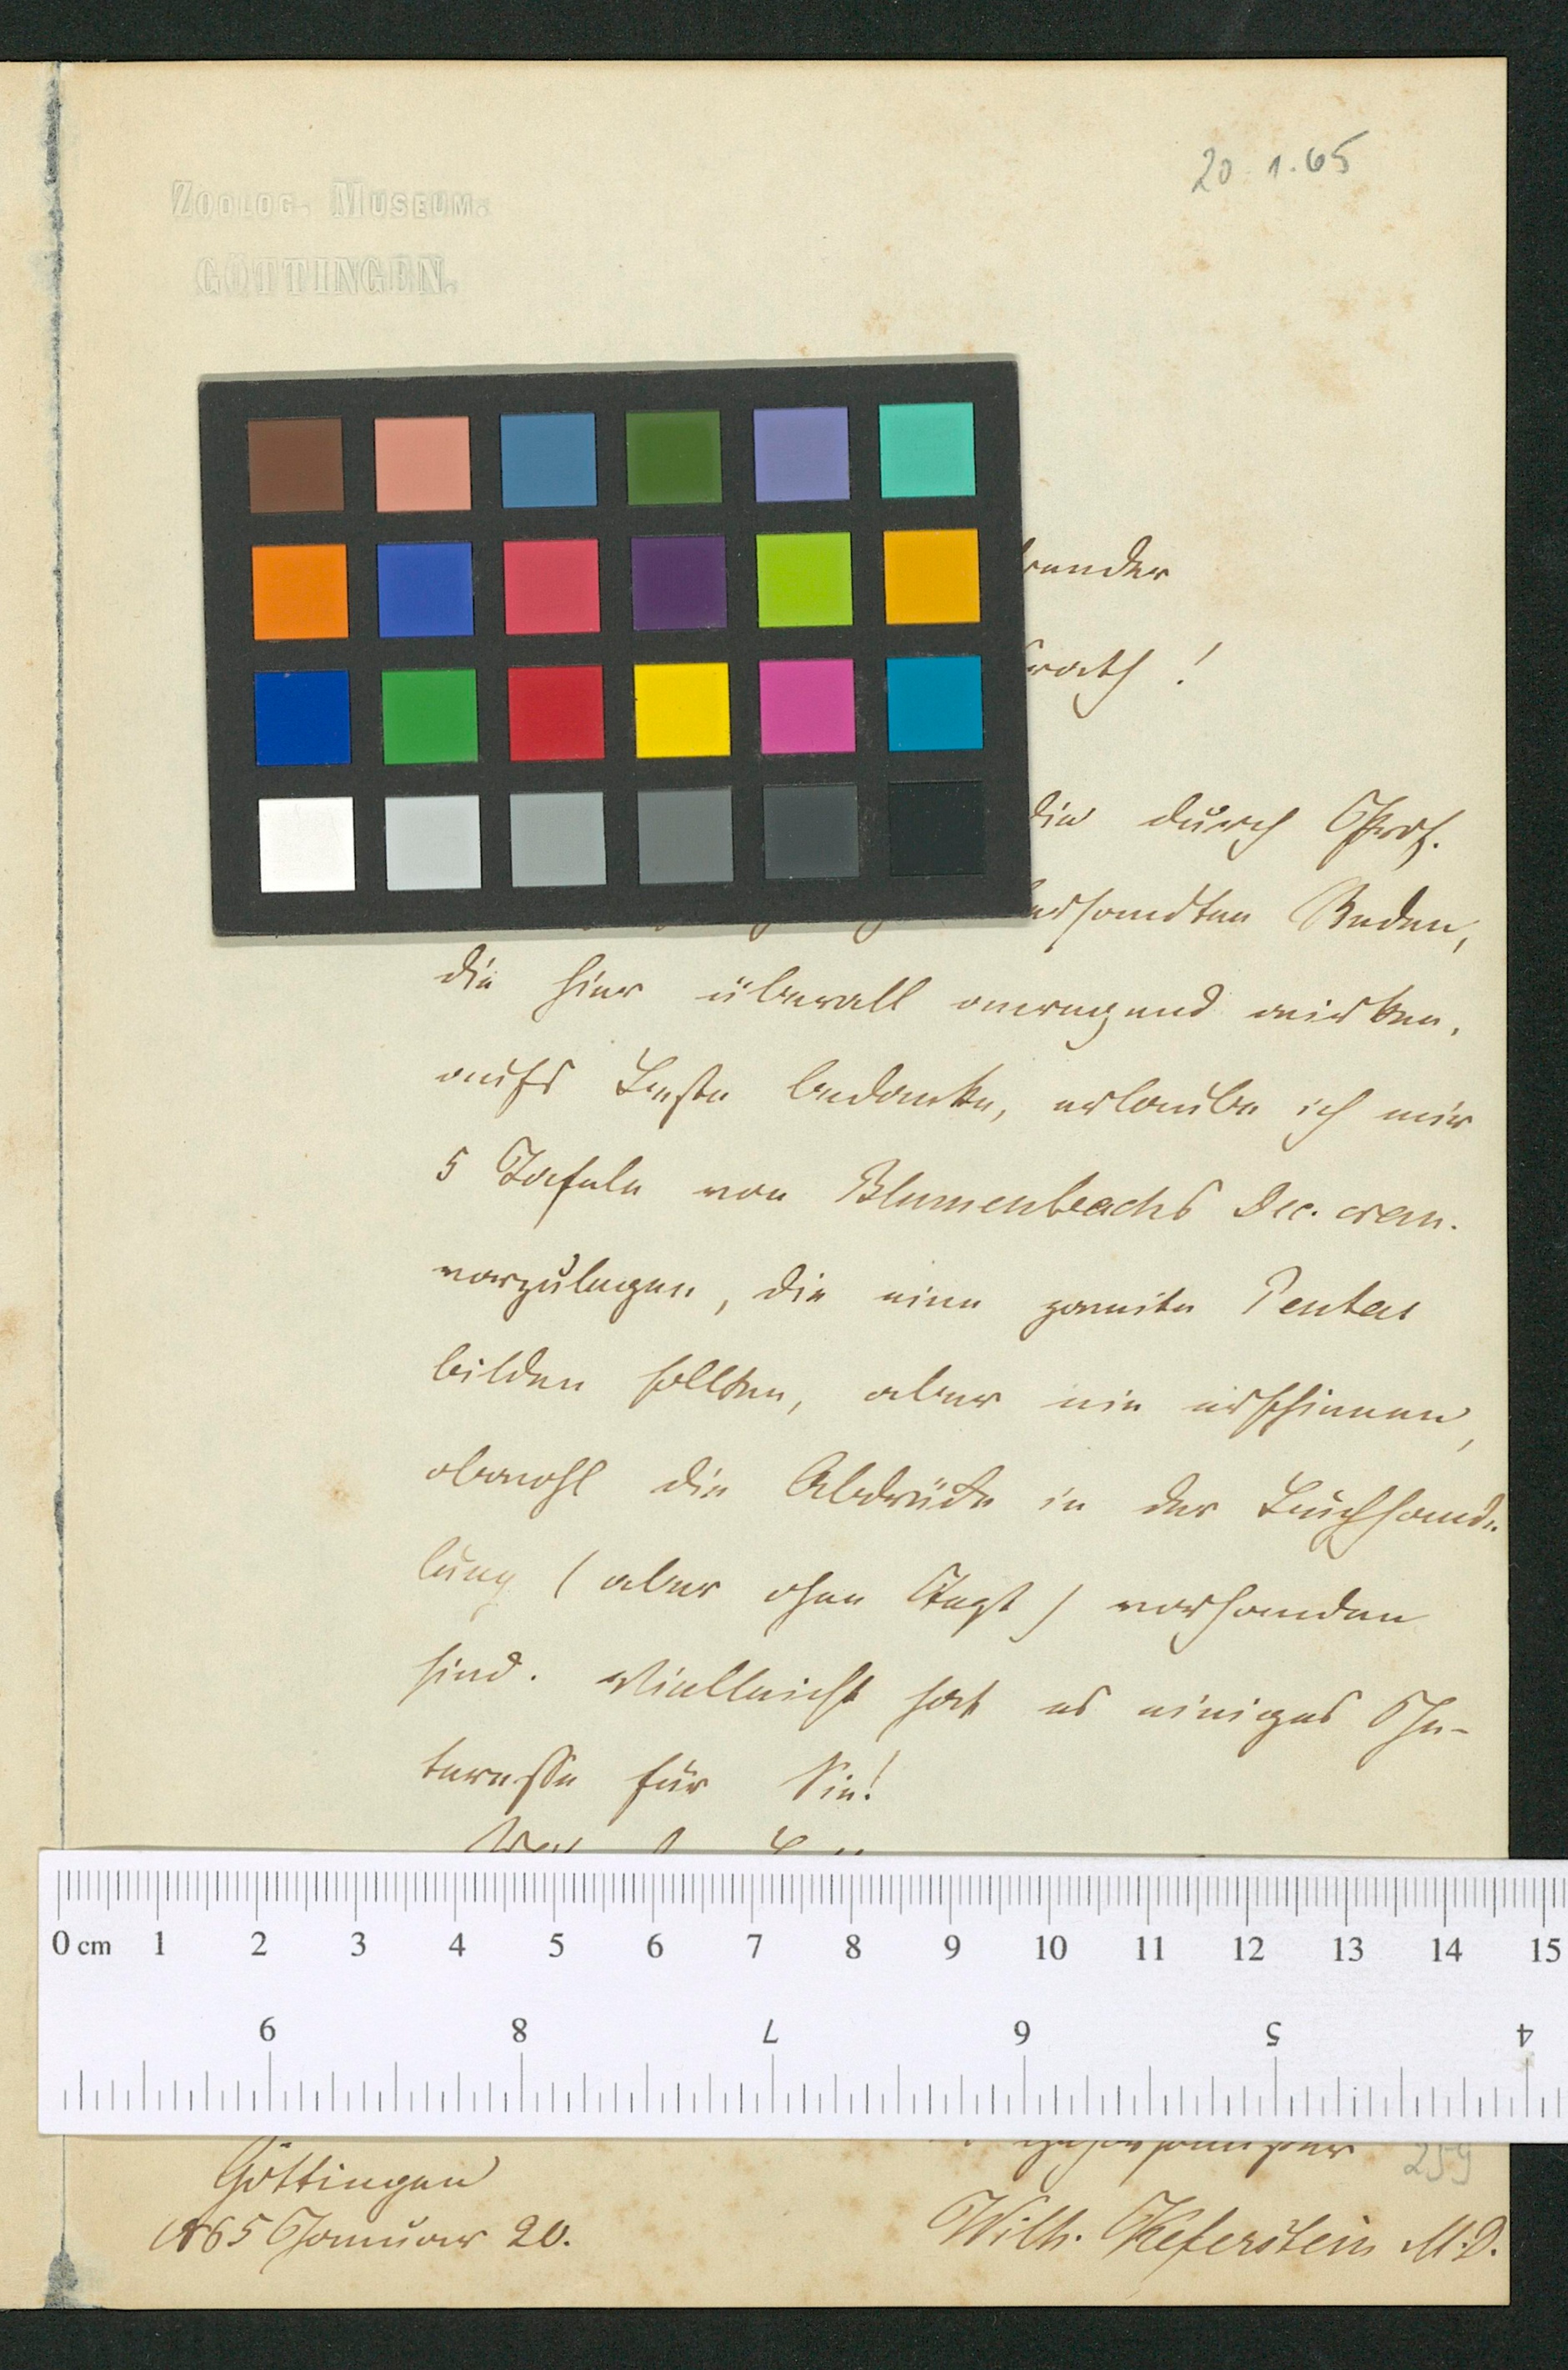 ZOOLOG. MUSEUM.
GÖTTINGEN.
20.1.65
render
rath!
die durch Prof.
ersandten Reden,
die hier überall anregend wirken,
aufs Beste bedanke, erlaube ich mir
5 Tafeln von Blumenbachs Dec. cran.
vorzulegen, die eine zweite Pentas
bilden sollten, aber nie erschienen,
obwohl die Abdrücke in der Buchhand-
lung (aber ohne Text) vorhanden
sind. Vielleicht hat es einiges In-
teresse für Sie!
0 cm 1 2 3 4 5 6 7 8 9 10 11 12 13 14 15
9 8 7 6 5 4
gehorsamster
259
Göttingen
1865 Januar 20.
Wilh. Keferstein M.D.